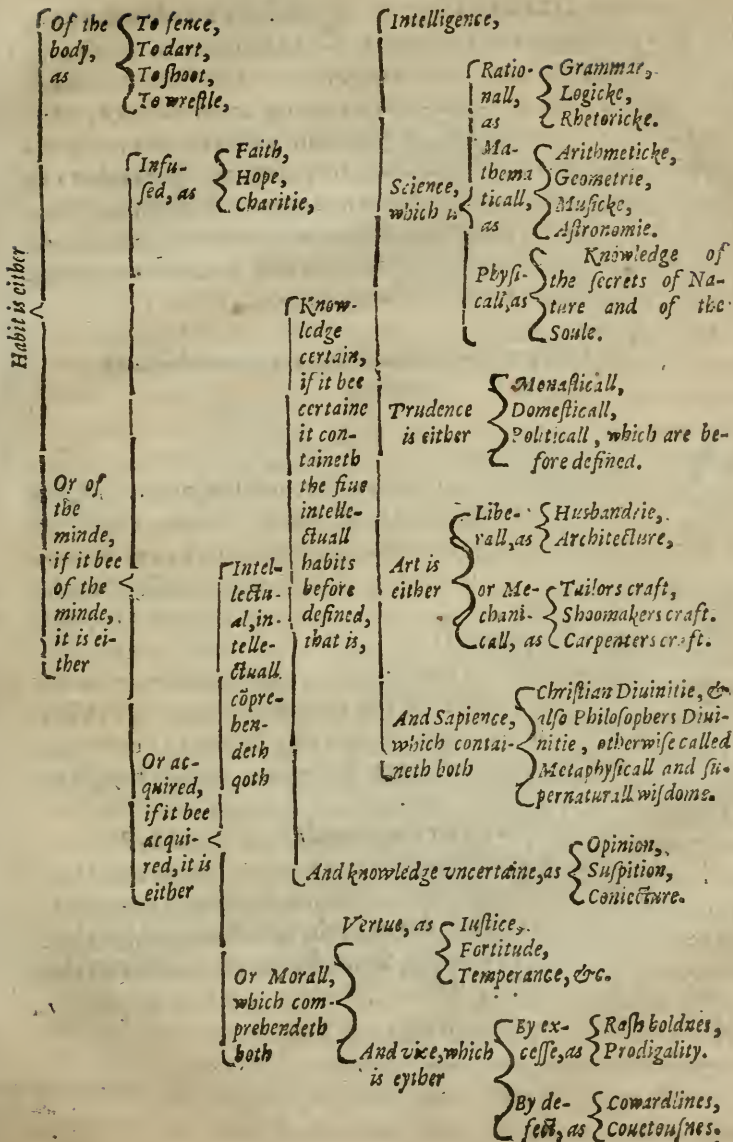 Habit is either
Of the
body,
as
To fence,
To dart,
To ſhoot,
To wreſtle,
Or of
the
minde,
if it bee
of the
minde,
it is ei-
ther
Infu-
ſed, as
Faith,
Hope,
Charitie,
Or ac-
quired,
if it bee
acqui-
red, it is
either
Intel-
lectu-
al, in-
telle-
ctuall
cōpre-
hen-
deth
qoth
Know-
ledge
certain,
if it bee
certaine
it con-
taineth
the fiue
intelle-
ctuall
habits
before
defined,
that is,
Intelligence,
Science,
which is
Ratio-
nall,
as
Grammar,
Logicke,
Rhetoricke.
Ma-
thema
ticall,
as
Arithmeticke,
Geometrie,
Muſicke,
Aſtronomie.
Phyſi-
call, as
Knowledge of
the ſecrets of Na-
ture and of the
Soule.
Prudence
is either
Monaſticall,
Domeſticall,
Politicall, which are be-
fore defined.
Art is
either
Libe-
rall, as
Husbandrie,
Architecture,
or Me-
chani-
call, as
Tailors craft,
Shoomakers craft.
Carpenters craft.
And Sapience,
which contai-
neth both
Chriſtian Diuinitie, &
alſo Philoſophers Diui-
nitie, otherwiſe called
Metaphyſicall and ſu-
pernaturall wiſdome.
And knowledge vncertaine, as
Opinion,
Suſpition,
Coniecture.
Or Morall,
which com-
prehendeth
both
Vertue, as
Iuſtice,
Fortitude,
Temperance, &c.
And vice, which
is eyther
By ex-
ceſſe, as
Raſh boldnes,
Prodigality.
By de-
fect, as
Cowardlines,
Couetouſnes.